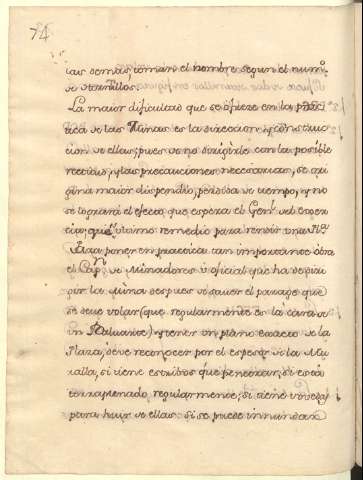 74
las demas, toman el nombre segun el num.º
de ornillos.
La maior dificultad que se ofreze en la prac
tica de las Minas es la direccion y construc
cion de ellas; pues de no dirigirse con la posible
rectitud, y las precauciones necessarias, se ori
gina maior dispendio, perdida de tiempo, y no
se lograrà el efecto que espera el Gen.l del
cia; que ultimo remedio para rendir una Pl.ª
Para poner en practica tan importante obra
el Cap.n de Minadores ù oficial que ha de diri
gir la Mina despues de saver el parage que
se deve volar (que regularmente es la cara de
un Baluarte) y tener un plano exacto de la
Plaza, deve reconocer por el espesor de la Mu
ralla, si tiene estribos que penetran, si està
terraplenado regularmente, si tiene vovedas
para huir de ellas si se puede innundar